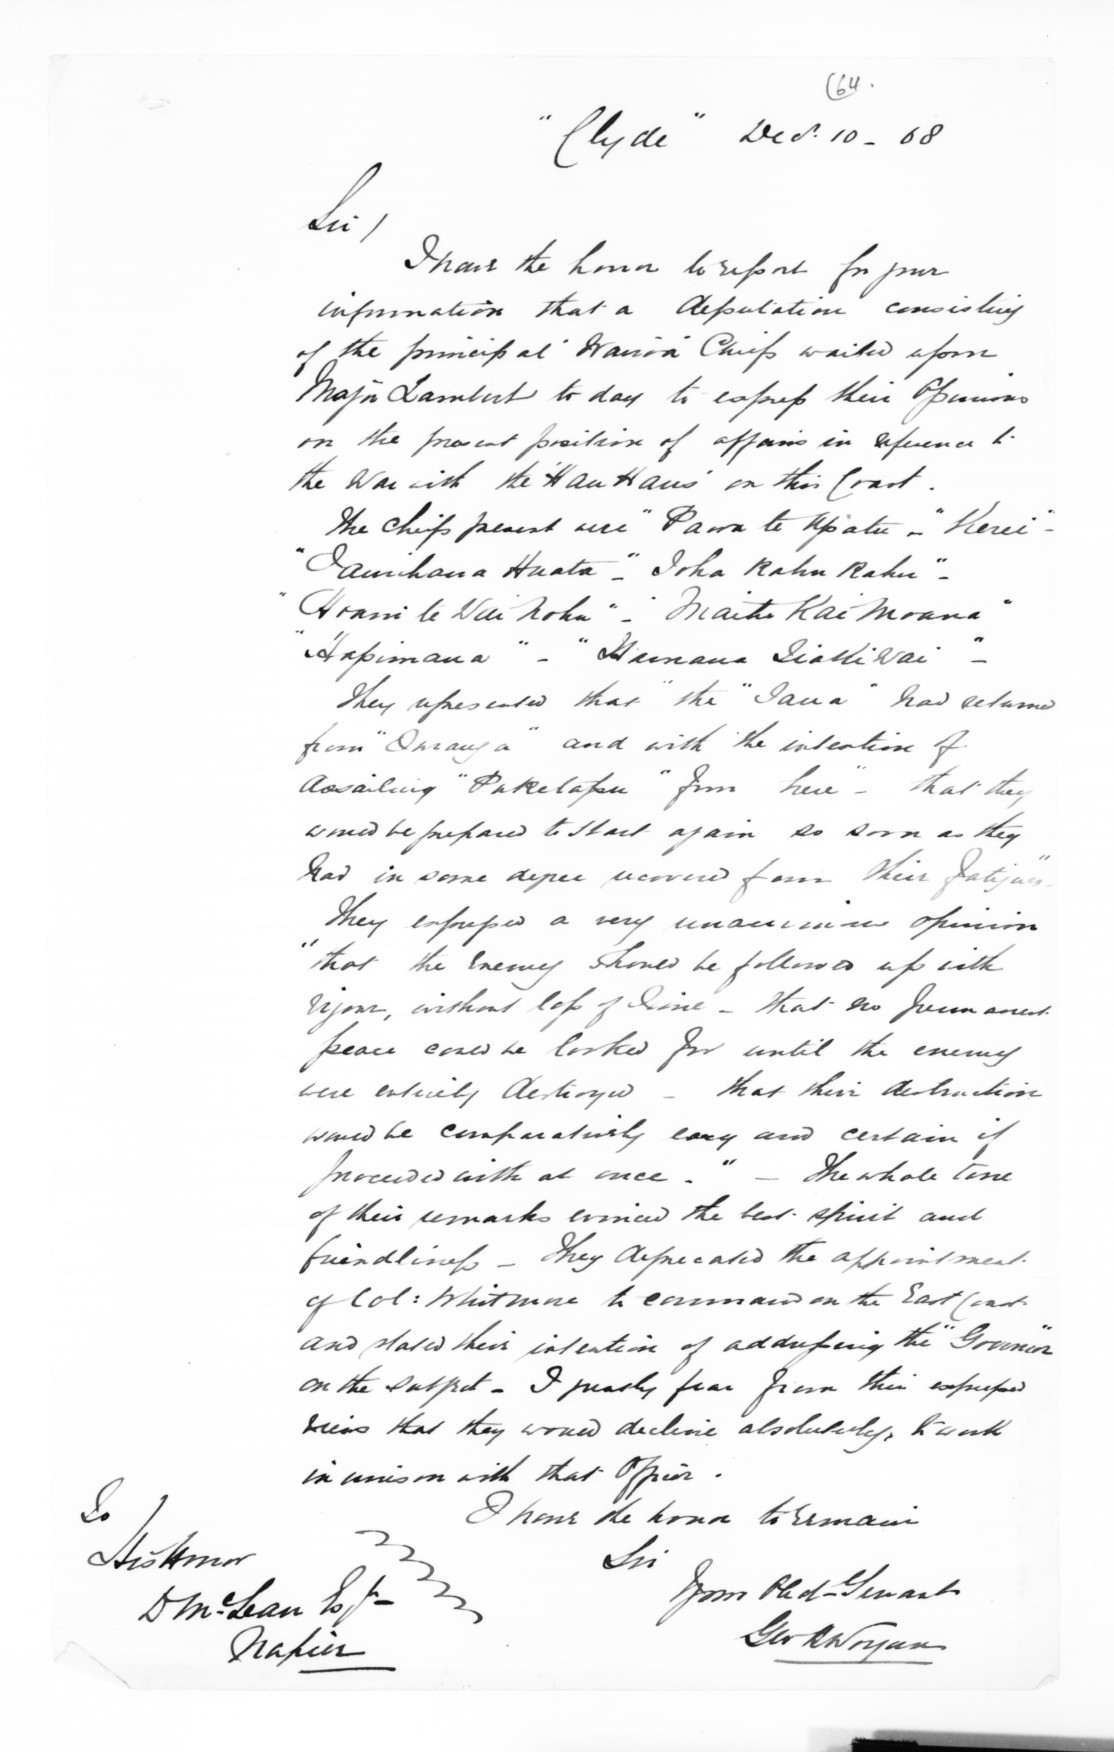 (64.
"Clyde" Decr. 10 - 68
Sir /
I have the honor to report for your
information that a deputation consisting
of the principal 'Wairoa' Chiefs waited upon
Major Lambert to day to express their opinions
on the present position of affairs in reference to
the War with the 'Hau Haus' on this Coast.
The Chiefs present were "Paora te Apatu" - "Kerei" -
"Tamihana Huata" - "Ioha Kahu Kahu" -
"Hoani te Wai Kohu" - "Maihi Kai Moana"
"Hapimana" - "Hamana Tiakiwai" -
They represented that "the "Taua" had returned
from "Turanga" and with the intention of
assailing "Puketapu" from here" - that they
would be prepared to start again so soon as they
had in some degree recovered from their fatigues".
They expressed a very unanimous opinion
"that the Enemy should be followed up with
vigour, without loss of Time - that no permanent
peace could be looked for until the enemy
were entirely destroyed - that their destruction
would be comparatively easy and certain if
proceeded with at once." - The whole tone
of their remarks evinced the best spirit and
friendliness - They deprecated the appointment
of Col: Whitmore to command on the East Coast
and stated their intention of addressing the "Governor"
on the subject - I greatly fear from their expressed
views that they would decline absolutely, to work
in unison with that Officer.
I have the honor to remain
Sir
Your Obedt Servant
Geo R Worgan
To
His Honor
D McLean Esqr
Napier